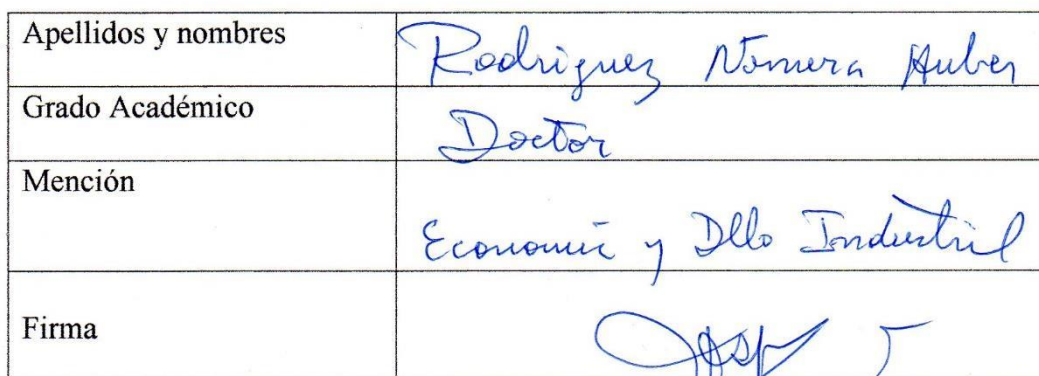 Apellidos y nombres Rodriguez Nomera Huber
Grado Académico Doctor
Mención
Economía y Dllo Industrial
Firma